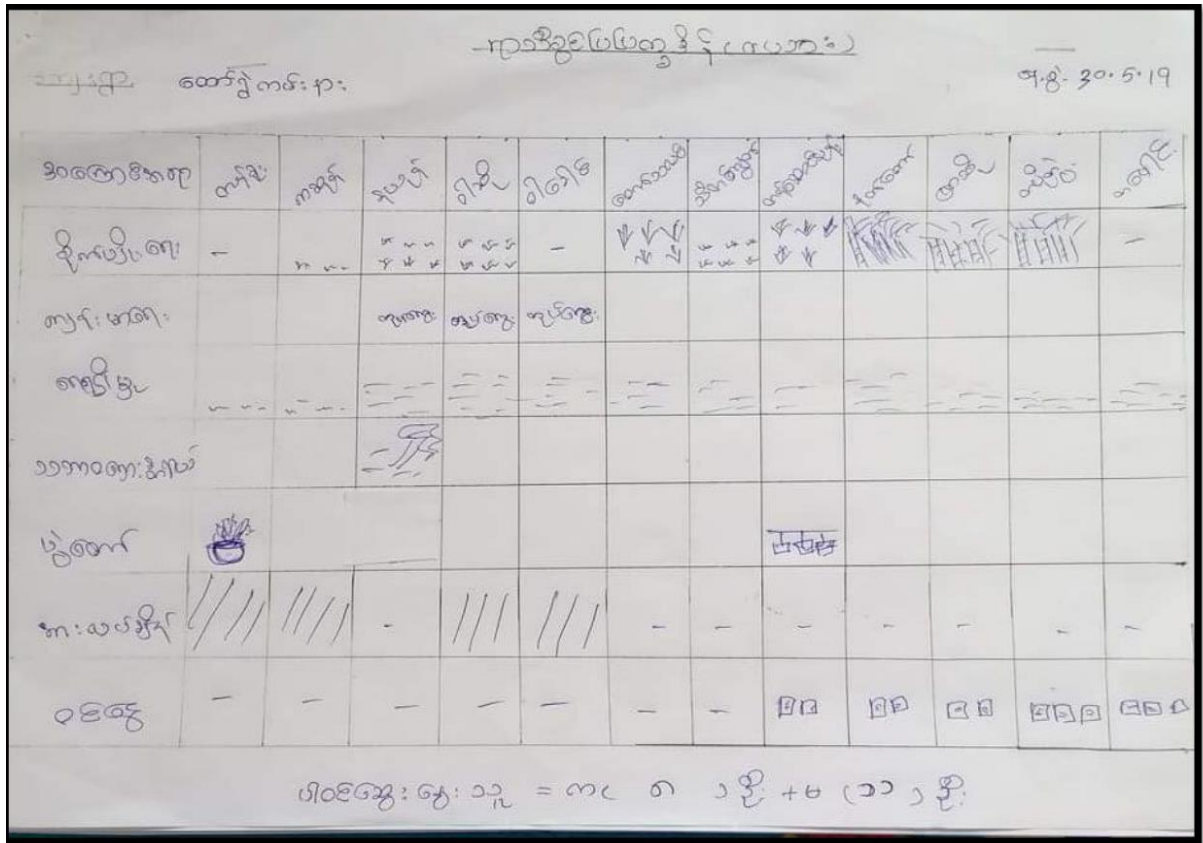 ရာသီခွင်ပြပြက္ခဒိန် (ကပအား)
တော်ရွဲကမ်းနား
ရ.စွဲ. 30.5.19
အကြောင်းအရာ တန်ခူး ကဆုန် နယုန် ဝါဆို ဝါခေါင် တော်သလင်း သီတင်းကျွတ် တန်ဆောင်မုန်း နတ်တော် ပြာသို တပို့တွဲ တပေါင်း
စိုက်ပျိုးရေး - -  -
ကျန်းမာရေး တုပ်ကွေး တုပ်ကွေး တုပ်ကွေး
ရေရရှိမှု
သဘာဝဘေးအန္တရာယ်
ပွဲတော်
အားလပ်ချိန် - - - - - - - -
ဝင်ငွေ - - - - - - -
ပါဝင်ဆွေးနွေးသူ =